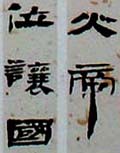 火帝
位讓國